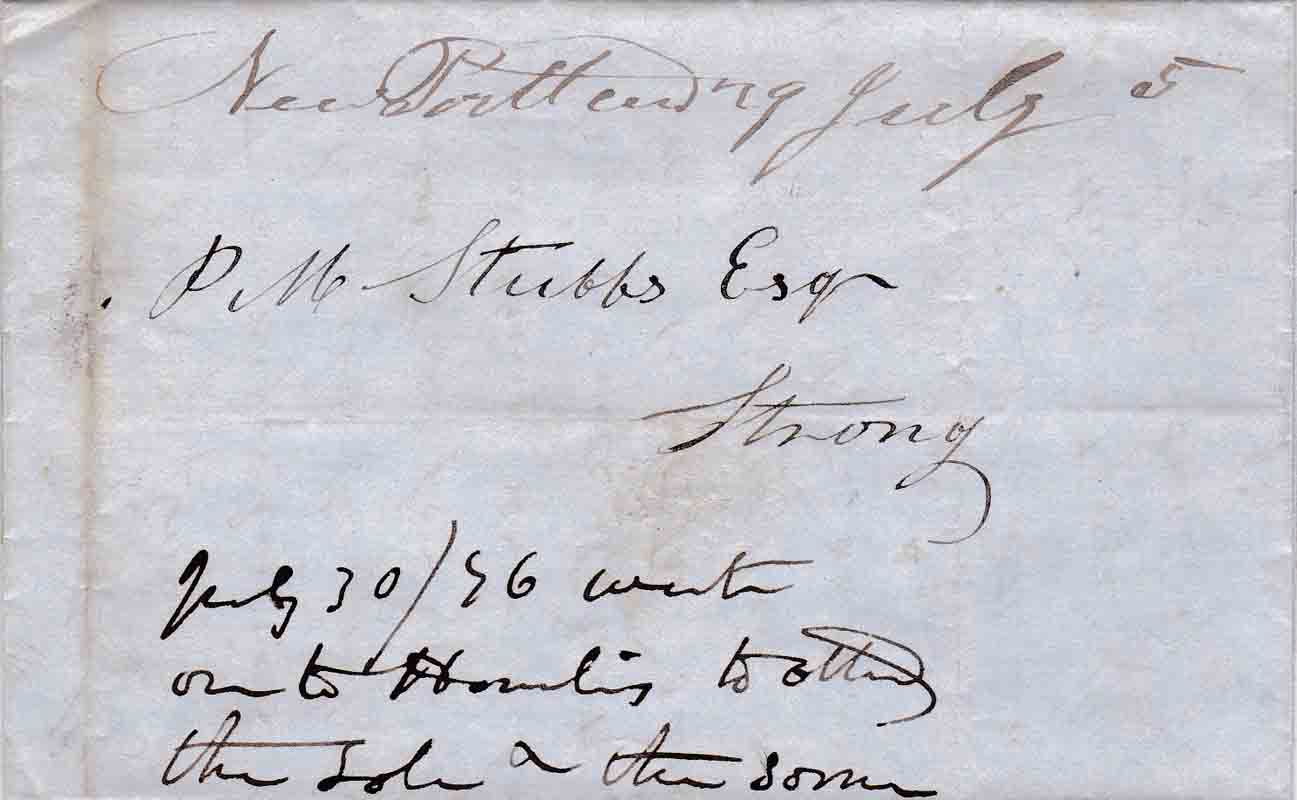 New Portland July 5
P M Stubbs Esqr
Strong
July 30/56 went
on to to attend
the Sale the same